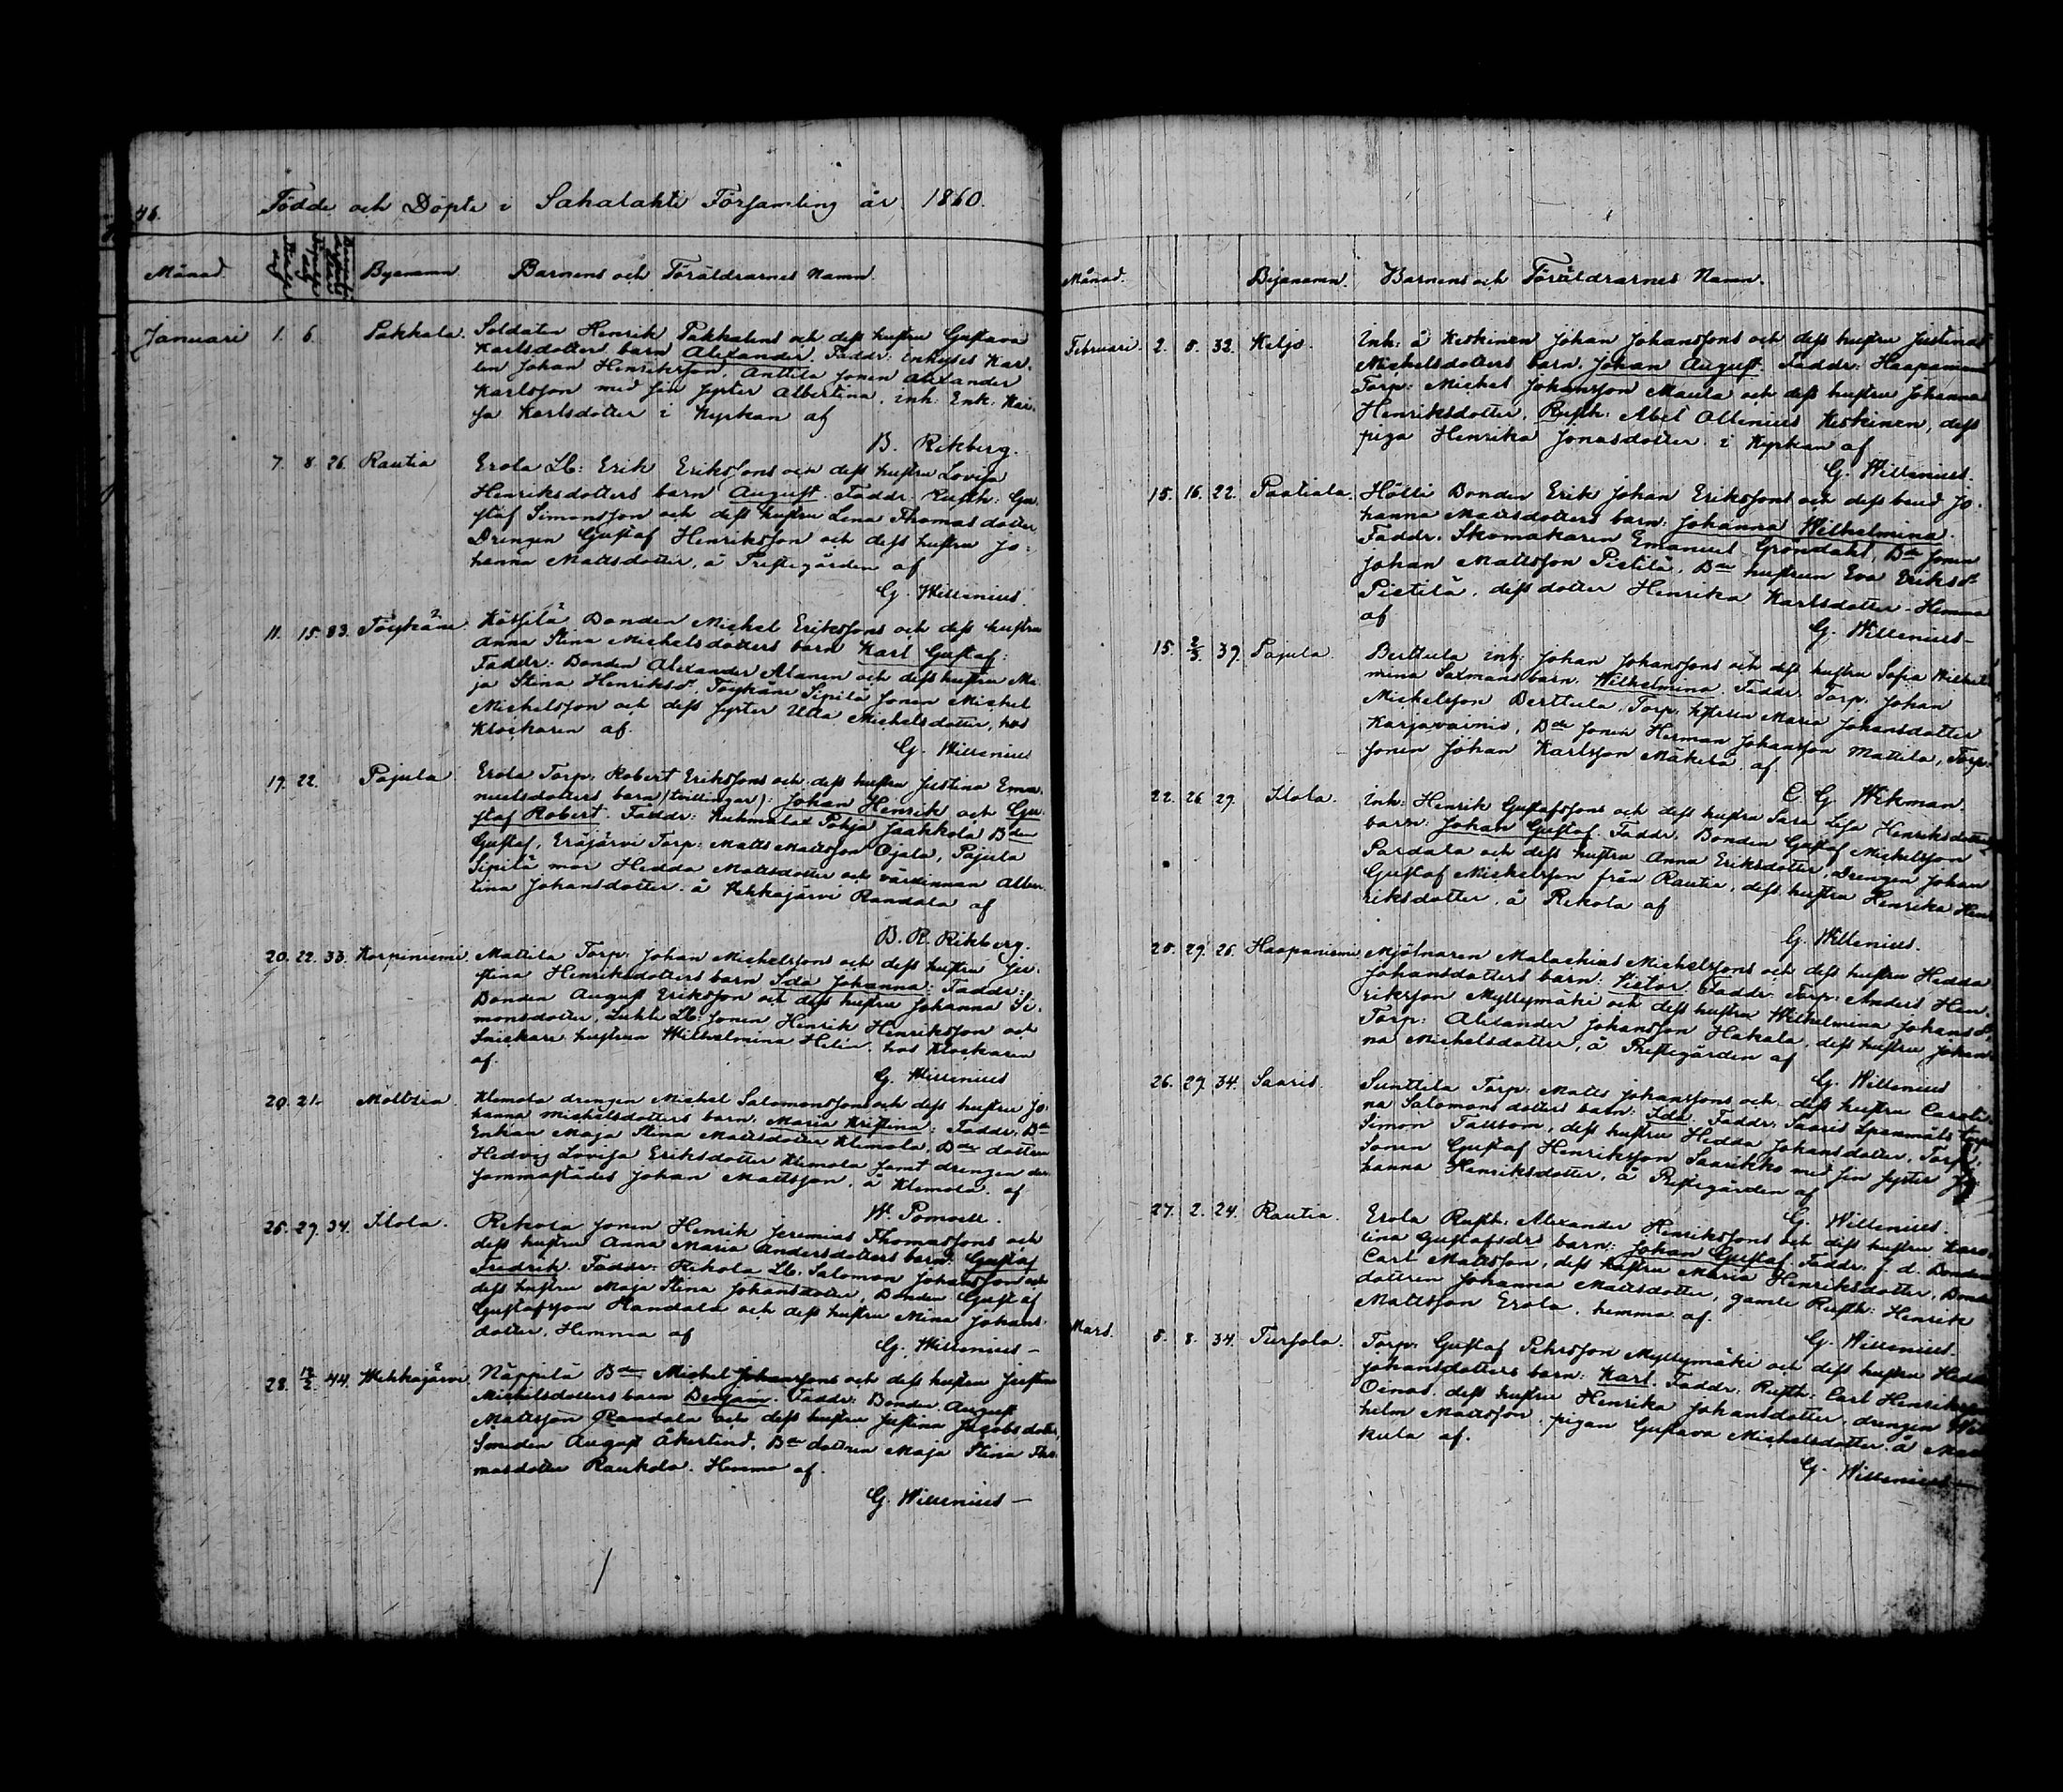 46.
Födde och Döpte i Sahalahti Församling år 1860.
Månad. Byanamn Barnens och Föräldrarnes Namn.
Januari 1. 6. Pakkala. Soldaten Henrik Pakkalens och dess hustru Gustava
Karlsdotters barn Alexander. Faddr: Inhyses Kar-
len Johan Henriksson, Anttila sonen Alexander
Karlsson med sin syster Albertina, inh: Enk: Kai-
sa Karlsdotter i Kyrkan af
B. Rikberg.
7. 8. 26. Rautia Erola Lb: Erik Erikssons och dess hustru Lovisa
Henriksdotters barn August. Faddr. Rusth: Gu-
staf Simonsson och dess hustru Lena Thomasdotter
Drengen Gustaf Henriksson och dess hustru Jo-
hanna Mattsdotter, å Prestegården af
G. Willenius.
11. 15. 33. Töykänä Kötsilä Bonden Michel Erikssons och dess hustru
Anna Stina Michelsdotters barn Karl Gustaf:
Faddr: Bonden Alexander Alanen och dess hustru Ma-
ja Stina Henriksdr, Töykänä Sipilä sonen Michel
Michelsson och dess syster Ulla Michelsdotter, hos
Klockaren af.
G. Willenius
19. 22. Pajula Erola Torp: Robert Erikssons och dess hustru Justina Ema-
nuelsdotters barn (tvillingar): Johan Henrik och Gu-
staf Robert. Faddr: Kuhmalax Pohja Jaakkola Bden
Gustaf, Eräjärvi Torp: Matts Mattsson Ojala, Pajula
Sipilä mor Hedda Mattsdotter och värdinnan Alber-
tina Johansdotter. å Wekkajärvi Randala af
B. R. Rikberg.
20. 22. 33. Korpiniemi. Mattila Torp: Johan Michelssons och dess hustru Ju-
stina Henriksdotters barn Ida Johanna: Faddr:
Bonden August Eriksson och dess hustru Johanna Si-
monsdotter, Lb: sonen Henrik Henriksson och
Snickare hustrun Wilhelmina Helin. hos Klockaren
af.
G. Willenius
20. 21. Moltsia. Klemola drengen Michel Salomonssons och dess hustru Jo-
hanna Michelsdotters barn. Maria Kristina: Faddr: Bde
Enkan Maja Stina Mattsdotter Klemola, Bde dottren
Hedvig Lovisa Eriksdotter Klemola samt drengen der-
sammastädes Johan Mattsson, å Klemola. af
25. 27. 34. Ilola. Rekola sonen Henrik Jeremias Thomassons och
dess hustru Anna Maria Andersdotters barn: Gustaf
Fredrik. Faddr: Rekola Lb: Salomon Johansson och
dess hustru Maja Stina Johansdotter, Bonden Gustaf
Gustafsson Handala och dess hustru Mina Johans-
dotter. Hemma af
G. Willenius
28. 12/2. 44. Wekkajärvi. Näppilä Bde Michel Johanssons och dess hustru Justina
Michelsdotters barn Benjam. Faddr: Bonden August
Mattsson Randala och dess hustru Justina Jacobsdotter,
Smeden August Åkerlund, Bde dottren Maja Stina Tho-
masdotter Raukola. Hemma af.
G. Willenius
Månad. Byanamn. Barnens och Föräldrarnes Namn.
Februari. 2. 5. 32. Keljo. Inh: å Keskinen Johan Johanssons och dess hustru Justina
Michelsdotters barn. Johan August. Faddr: Haapaniemi
Torp: Michel Johansson Maula och dess hustru Johanna
Henriksdotter, Rusth: Abel Ollenius Keskinen, dess
piga Henrika Jonasdotter i Kyrkan af
G. Willenius.
15. 16. 22. Paatiala. Hölli Bonden Erik Johan Erikssons och dess brud Jo-
hanna Mattsdotters barn: Johanna Wilhelmina.
Faddr: Skomakaren Emanuel Gröndahl, Bde sonen
Johan Mattsson Pietilä, Bde hustrun Eva Eriksdr
Pietilä, dess dotter Henrika Karlsdotter. Hemma
af
G. Willenius
15. 2/3. 39. Pajula Berttula inh: Johan Johanssons och dess hustru Sofia Wilhel-
mina Saxmans barn. Wilhelmina. Faddr: Torp: Johan
Michelsson Berttula, Torp: hustrun Maria Johansdotter
Karjavainio, Bde sonen Herman Johansson Mattila, Torp:
sonen Johan Karlsson Mäkelä. af
C. G. Wekman.
22. 26. 27. Ilola. Inh: Henrik Gustafssons och dess hustru Sara Lisa Henriksdotters
barn: Johan Gustaf. Faddr: Bonden Gustaf Michelsson
Pardala och dess hustru Anna Eriksdotter, Drengen Johan
Gustaf Michelsson från Rautia, dess hustru Henrika Hen-
riksdotter, å Rekola af
G. Willenius.
25. 27. 26. Haapaniemi Mjölnaren Malachias Michelssons och dess hustru Hedda
Johansdotters barn: Victor. Faddr: Torp: Anders Hen-
riksson Myllymäki och dess hustru Wilhelmina Johansdr,
Torp: Alexander Johansson Hakala, dess hustru Johan-
na Michelsdotter, å Prestegården af
G. Willenius
26. 27. 34. Saaris. Sunttila Torp: Matts Johanssons och dess hustru Caroli-
na Salomonsdotters barn: Ida. Faddr: Saaris Torp:
Simon Tallbom, dess hustru Hedda Johansdotter, Torp:
Sonen Gustaf Henriksson Saarikko med sin syster Jo-
hanna Henriksdotter, å Prestegården af
G. Willenius.
27. 2. 24. Rautia. Erola Rusth: Alexander Henrikssons och dess hustru Karo-
lina Gustafsdrs barn: Johan Gustaf. Faddr: f. d. Bonden
Carl Mattsson, dess hustru Maria Henriksdotter, Bonde
dottren Johanna Mattsdotter, gamle Rusth: Henrik
Mattsson Erola, hemma af.
G. Willenius.
Mars. 5. 8. 34. Tursola. Torp: Gustaf Pehrsson Myllymäki och dess hustru Hedda
Johansdotters barn: Karl. Faddr: Rusth: Carl Henriksson
Oinas, dess hustru Henrika Johansdotter, drengen Wil-
helm Mattsson, pigan Gustava Michelsdotter. å
kula af.
G. Willenius